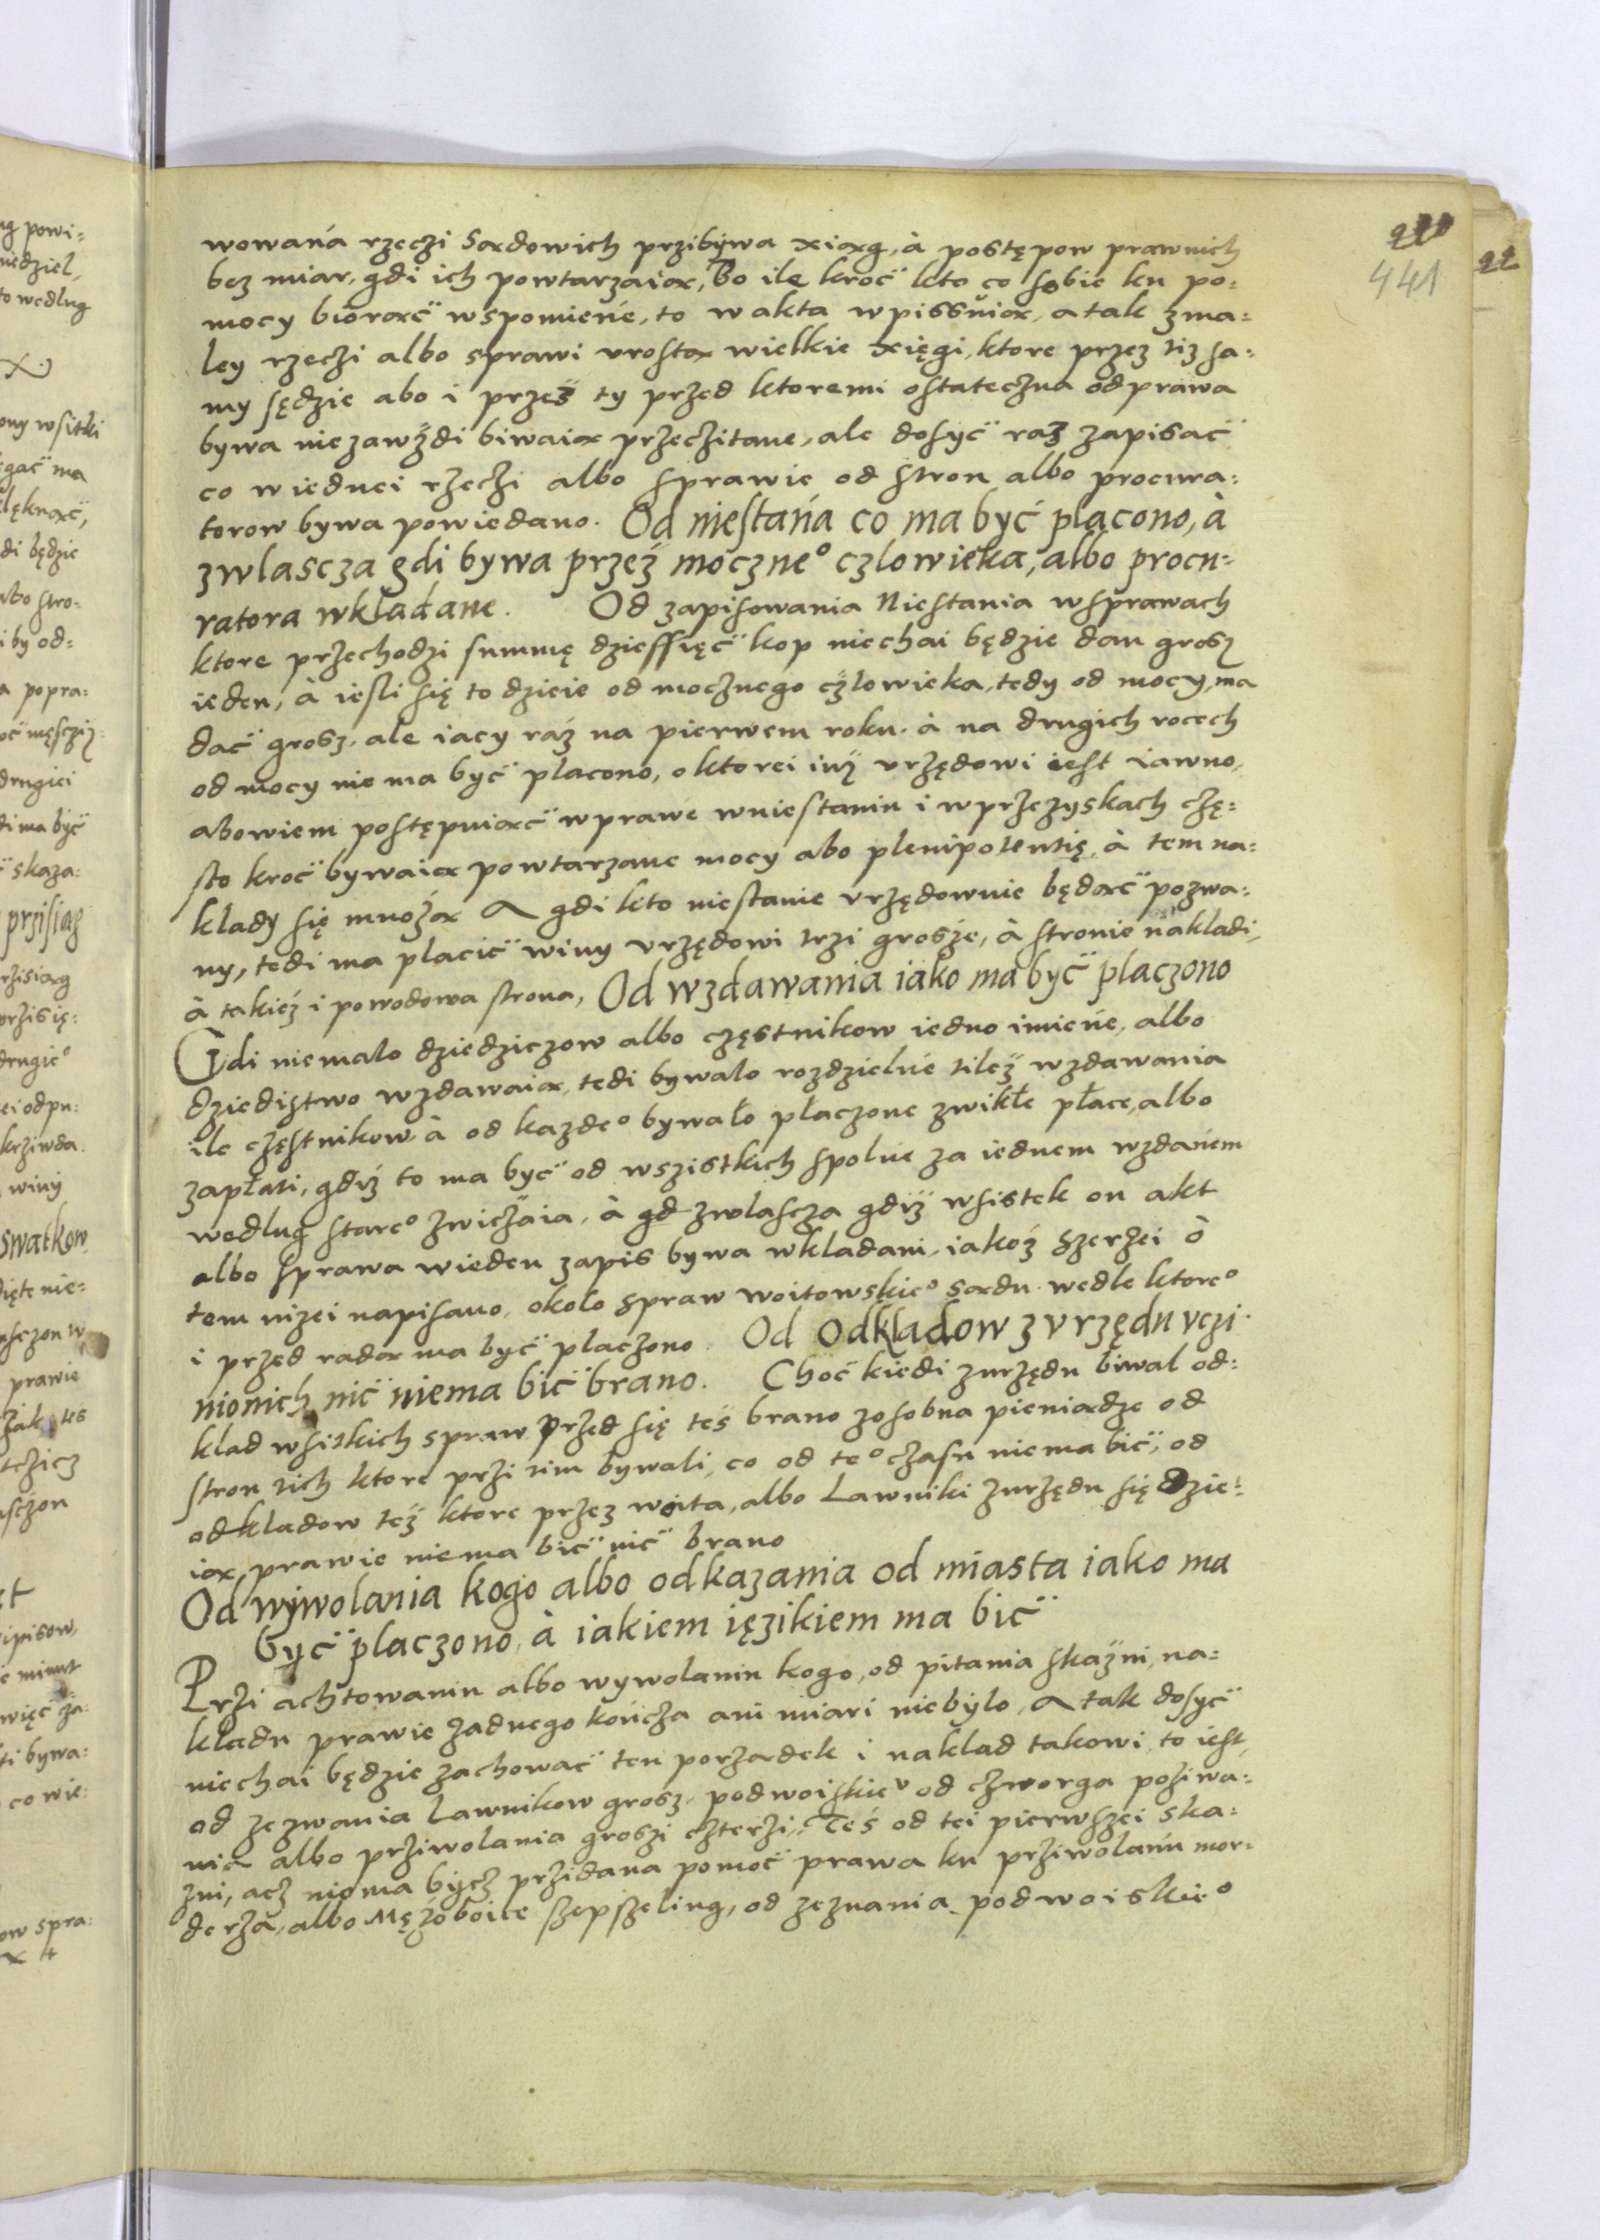 wowańa rzeczi Sądowich przibÿwa xiąg, à postępow prawnich
bez miar, gdi ich powtarzaią, Bo ile kroć kto co sobie ku po=
mocy biorąć wspomieńe, to w akta wpissuią, a tak zma=
ley rzeczi albo sprawi urostą wielkie xięgi, ktore przez tiz sa=
my sędzie abo i przez ty przed ktoremi ostateczna odprawa
bywa niezawżdi biwaią przeczitane, ale dosyć raz zapisać
co wiednei rzeczi albo sprawie od stron albo procura=
torow bywa powiedano. Od niestańa co ma być płacono, à
zwlascza gdi bywa przeź moczneº czlowieka, albo procu=
ratora wkladane. Od zapisowania Niestania wsprawach
ktore przechodzi summę dziessięć kop niechai będzie dan grosz
ieden, à iesli się to dzieie od mocznego czlowieka, tedy od mocy, ma
dać grosz, ale iacy ráz na pierwem roku. à na drugich rocech
od mocy nie ma być placono, o ktorei iuż urzędowi iest iawno,
abowiem postępuiąć wprawe wniestaniu i wprzezyskach czę=
sto kroć bywaią powtarzane mocy abo plenipotentię, à tem na=
klady się mnożą A gdi kto niestanie urzędownie będąć pozwa=
ny, tedi ma placić winy urzędowi trzi grosze, à stronie nakladi,
à takież i powodowa strona, Od wzdawania iako ma być płaczono
Gdi niemalo dziedziczow albo częstnikow iedno imieńe, albo
dziedistwo wzdawaią, tedi bywalo rozdzielńe tileż wzdawania
ile częstnikow à od kazdeº bywało płaczone zwikłe płace, albo
zapłati, gdiż to ma być od wszistkich spolńe za iednem wzdańem
wedlug stareº zwiczáia, à gd zwlascza gdiż wsistek on akt
albo sprawa wieden zapis bywa wkladani, iakoż szerzei ò
tem nizei napisano, okolo spraw woitowskieº Sądu wedle ktoreº
i przed radą ma być placzono. Od Odkładow z urzędu uczi=
nionich nić niema bić brano. Choć kiedi zurzędu biwal od=
klad wsitkich spraw przed się teś brano zosobna pieniądze od
stron tich ktore przi tim bywali, co od teº czasu niema bić, od
odkladow też ktore przez woita, albo Lawniki zurzędu się dzie=
ią, prawie niema bić nić brano
Od wÿwolania kogo albo odkazania od miasta iako ma
być placzono, à iakiem ięzikiem ma bić
Przi achtowaniu albo wywolaniu kogo, od pitania skaźni, na=
kladu prawie żadnego kończa ani miari niebylo, A tak dosyć
niechai będzie zachować ten porządek i naklad takowi, to iest,
od zezwania Lawnikow grosz, podwoiskieº od czworga poziwa=
nia albo prziwolania groszi czterzi, Teś od tei pierwszei ska=
zni, acz niema bycz przidana pomoć prawa ku prziwolańu mor=
derza, albo Mężoboice szepszeling, od zeznania podwoiskieº
441